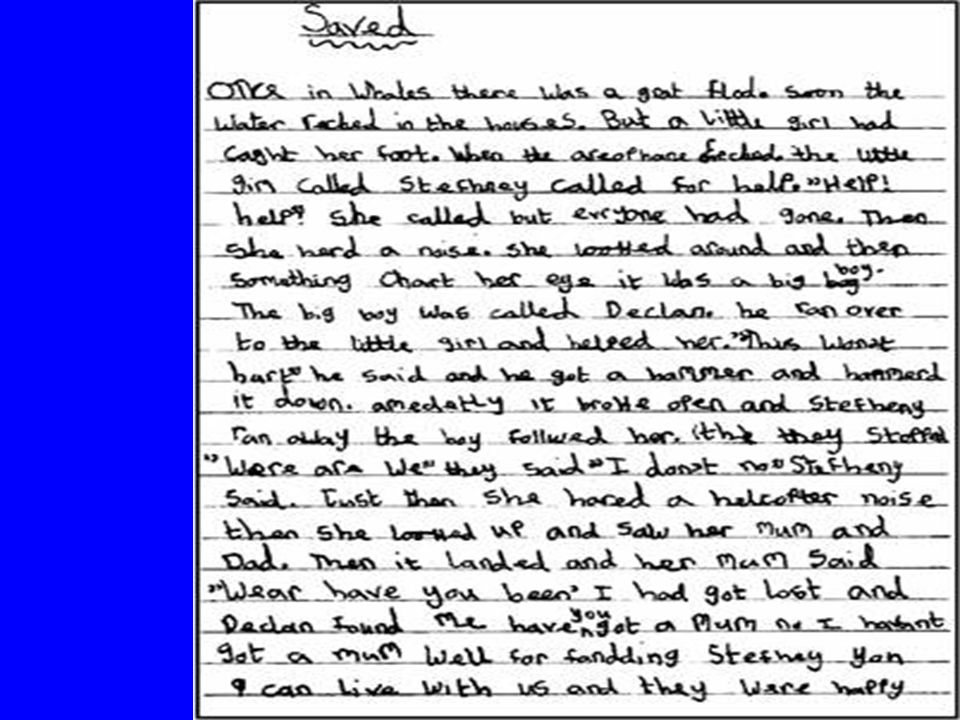 Saved
Once in Whales there was a grat flod. soon the
Water reched in the houses. But a little girl had
caght her foot. When the areophane feched. the little
girl called Stephney called for help. "Help!
help" she called but everyone had gone. Then
She herd a noise. she looked around and then
something Chart her eye it was a big boy.
The big boy was called Declan. he ran over
to the little girl and helped her. "This wonot
hurt" he said and he got a hammer and hammerd
it down. amedatly it broke open and Stepheny
ran away the boy follwed her. the they stopped
"Were are We" they said "I donot no" Stepheny
Said. Just then she hared a helcopter noise
then she looked up and saw her mum and
Dad. Then it landed and her mum Said
"Wear have you been" I had got lost and
Declan found me have you got a Mum no I havant
got a mum Well for fandding Stephney you
can live with us and they were happy